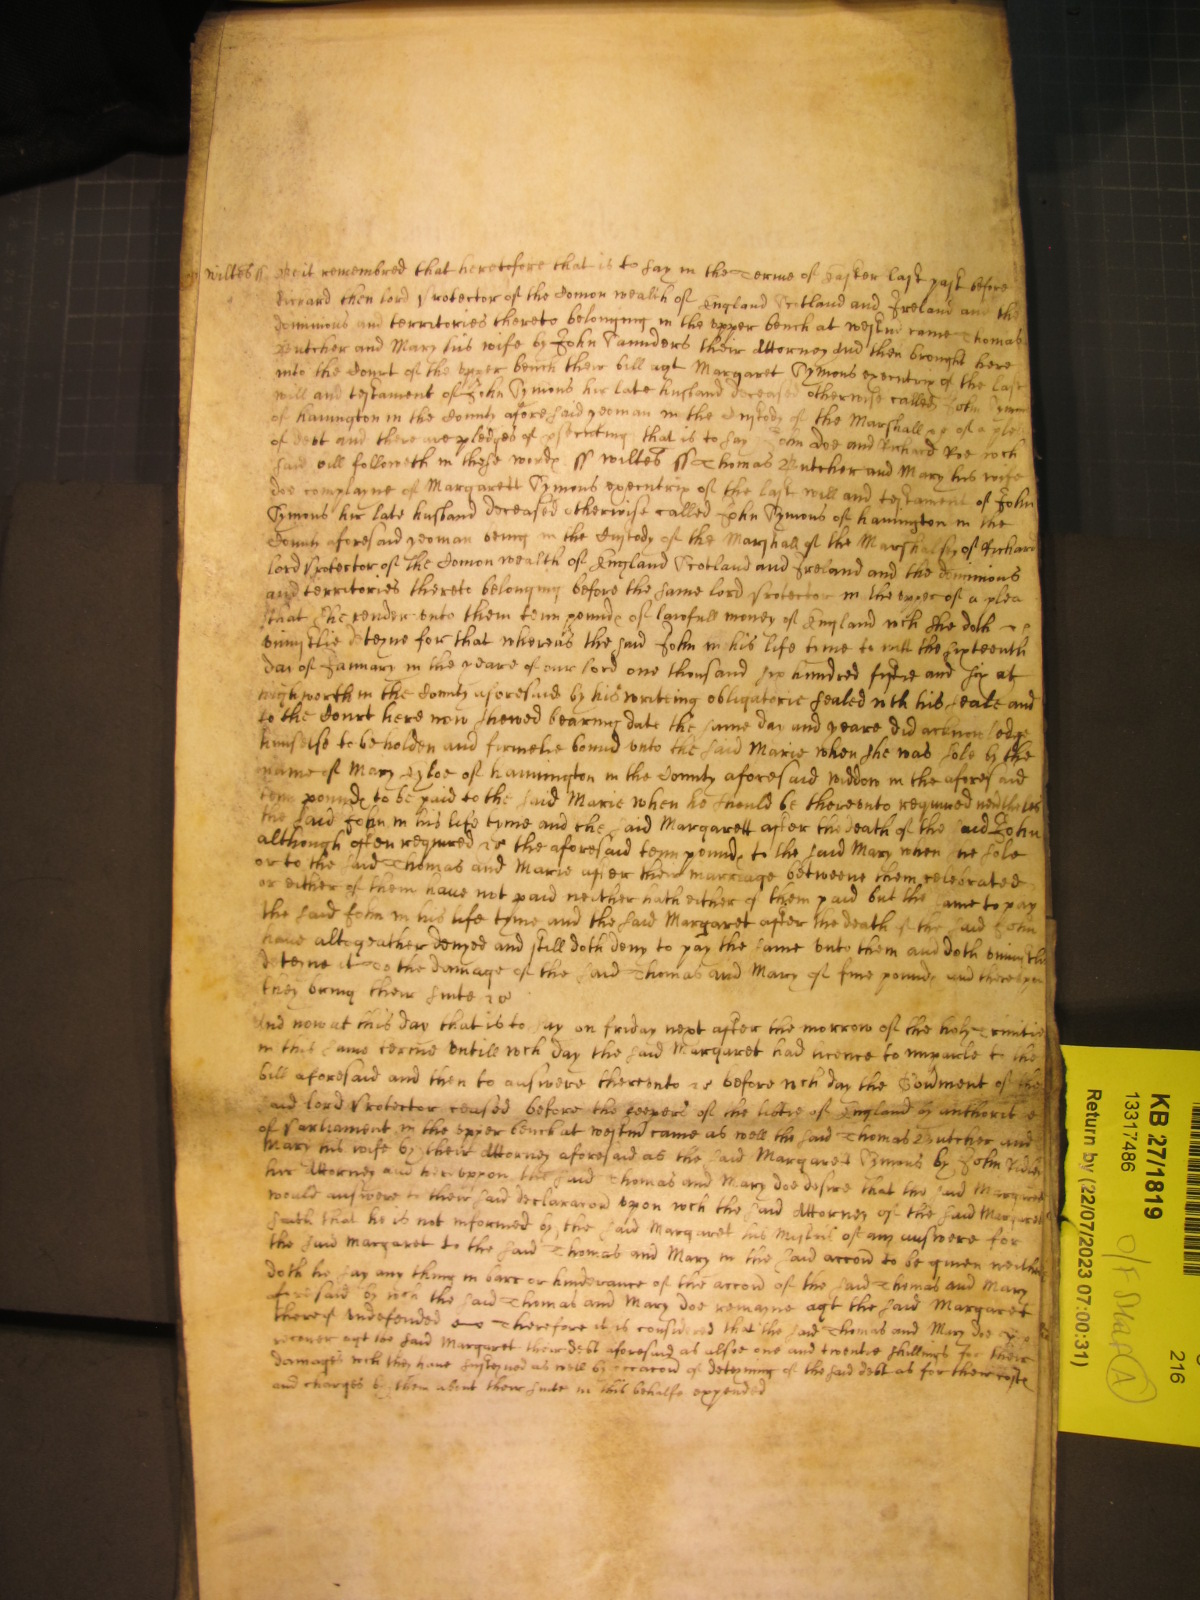 wiltes ss Be it remembred that heretofore that is to say in the Terme of Easter last past before
Richard then lord Protector of the Comon wealth of England Scotland and Ireland and the
dominions and territories thereto belonging in the upper bench at westm came Thomas
Butcher and Mary his wife by John Saunders their Attorney And then brought here
into the Court of the upper bench their bill agt Margaret Symons executrix of the last
will and testament of John Symons hir late husband deceased otherwise called John Symons
of hanington in the County aforesaid yeoman in the Custody of the Marshall &c of a plea
of debt and there are pledges of psecuting that is to say John Doe and Richard Roe wch
said bill followeth in these words ss wiltes ss Thomas Butcher and Mary his wife
doe complayne of Margarett Symons executrix of the last will and testament of John
Symons hir late husband deceased otherwise called John Symons of hanington in the
County aforesaid yeoman being in the Custody of the Marshall of the Marshalsey of Richard
lord Protector of the Comon wealth of England Scotland and Ireland and the dominions
and territories thereto belonging before the same lord Protector in the upper of a plea
that she render unto them tenn pounds of lawfull money of England wch she doth
uniustlie deteyne for that whereas the said John in his life time to witt the sixteenth
day of January in the yeare of our lord one thousand six hundred fiftie and six at
highworth in the County aforesaid by his writeing obligatorie sealed with his seale and
to the Court here now shewed bearing date the same day and yeare did acknowledge
himselfe to be holden and firmelie bound unto the said Marie when she was sole by the
name of Mary of hannington in the County aforesaid widdow in the aforesaid
tenn pounds to be paid to the said Marie when he should be thereunto required
the said John in his life tyme and the said Margarett after the death of the said John
although often required &c the aforesaid tenn pounds to the said Mary when she sole
or to the said Thomas and Marie after their marriage betweene them celebrated
or either of them have not paid neither hath either of them paid but the same to pay
the said John in his life tyme and the said Margaret after the death of the said John
have altogeather denyed and still doth deny to pay the same unto them and doth uniustlie
deteine it To the damage of the said Thomas and Mary of five pounds and thereupon
they bring their suite &c
And now at this day that is to say on friday next after the morrow of the holy Trinitie
in this same terme untill wch day the said Margaret had licence to imparle to the
bill aforesaid and then to answere thereunto &c before wch day the Govment of the
said lord Protector ceased before the keepers of the libtie of England by authoritie
of Parliament in the upper bench at westm came as well the said Thomas Butcher and
Mary his wife by their Attorney aforesaid as the said Margarett Symons by John
hir Attorney and hereuppon the said Thomas and Mary doe desire that the said Margaret
would answere to their said declaracon upon wch the said Attorney of the said Margaret
saith that he is not informed by the said Margaret his Mistris of any answere for
the said Margaret to the said Thomas and Mary in the said accon to be given neither
doth he say any thing in barr or hinderance of the accon of the said Thomas and Mary
aforesaid by wch the said Thomas and Mary doe remayne agt the said Margaret
thereof undefended Therefore it is considered that the said Thomas and Mary doe
recover agt the said Margaret their debt aforesaid as alsoe one and twentie shillings for their
damages wch they have susteyned as well by occacon of deteyning of the said debt as for their costs
and charges by them about their suite in this behalfe expended
KB 27/1819
13317486
Return by (22/07/2023 07:00:31)
216
A